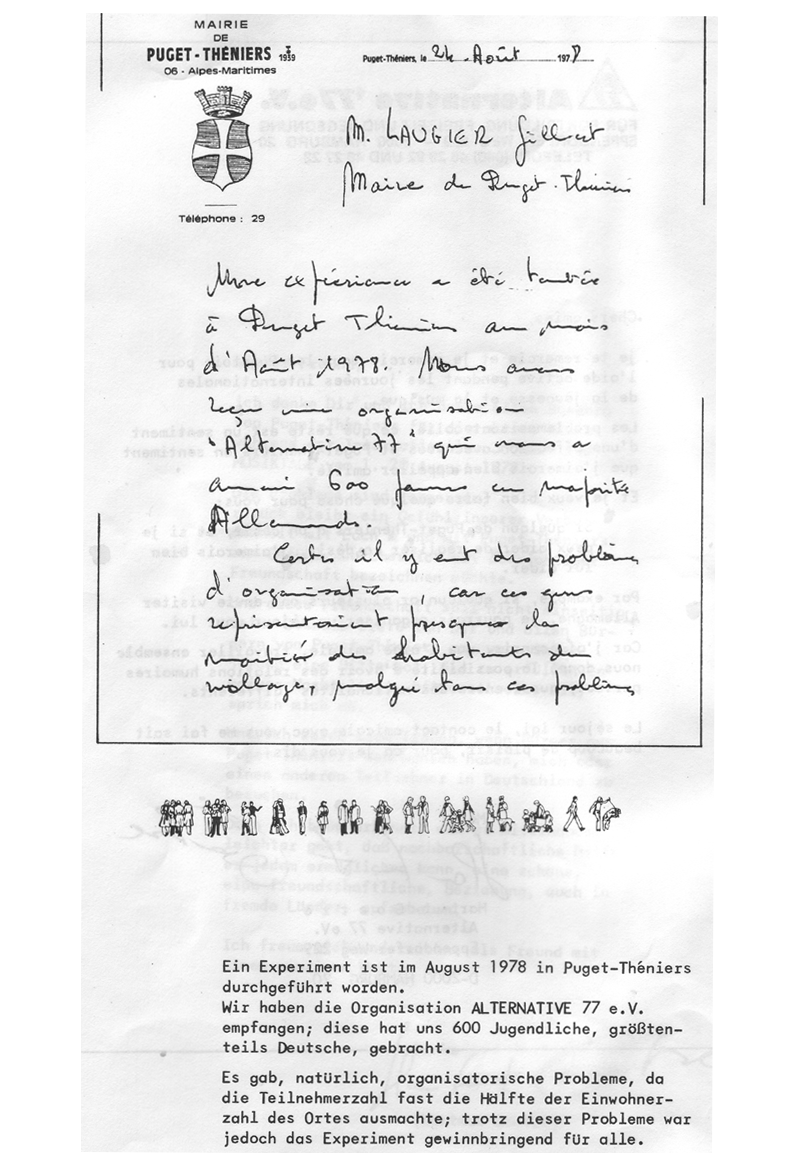 MAIRIE
DE
PUGET-THÉNIERS
06 - Alpes-Maritimes
Téléphone : 29
Puget-Théniers, le 24 Août 1978
M. LAUGIER Gilbert
Maire de Puget-Théniers
Une expérience a été tentée
à Puget Théniers au mois
d'Août 1978. Nous avons
reçu une organisation
"Alternative 77" qui nous a
amené 600 jeunes en majorité
Allemands.
Certes il y eut des problèmes
d'organisation, car ces gens
représentaient presque la
moitié des habitants du
village, malgré tous ces problèmes
Ein Experiment ist im August 1978 in Puget-Théniers
durchgeführt worden.
Wir haben die Organisation ALTERNATIVE 77 e.V.
empfangen; diese hat uns 600 Jugendliche, größten-
teils Deutsche, gebracht.
Es gab, natürlich, organisatorische Probleme, da
die Teilnehmerzahl fast die Hälfte der Einwohner-
zahl des Ortes ausmachte; trotz dieser Probleme war
jedoch das Experiment gewinnbringend für alle.